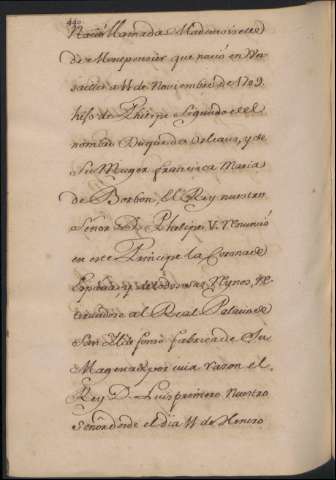 440
Nació llamada Madamoiselle
de Monepensier que nació en Ver-
salles a 11 de Noviembre de 1709.
hija de Phelipe Segundo del
nombre Duque de Orleans, y de
Su Muger Francisca Maria
de Borbon, El Rey nuestro
Señor D. Phelipe V. Renunció
en este Principe la Corona de
España, y de los demas Reynos, re-
tirandose al Real Palacio de
San Ildefonso fabrica de Su
Magestad por cuia razon el
Rey D. Luis primero Nuestro
Señor desde el dia 11 de Henero